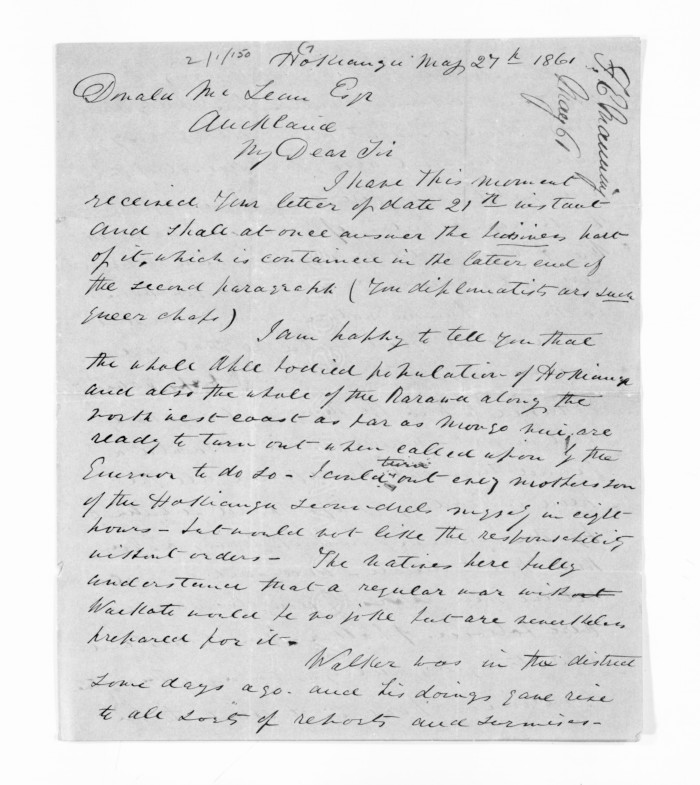 2/1/150
Hokianga May 27th 1861
F E Maning
May 61
Donald McLean Esqr
Auckland
My Dear Sir
I have this moment
received Your letter of date 21st instant
and shall at once answer the business part
of it, which is contained in the latter end of
the second paragraph (You diplomatists are such
queer chaps)
I am happy to tell You that
the whole Able bodied population of Hokianga
and also the whole of the Rarawa along the
north west coast as far as Mongo nui, are
ready to turn out when called upon by the
Governor to do so - I could turn out every mothers son
of the Hokianga scoundrels myself in eight
hours - but would not like the responsibility
without orders - The natives here fully
understand that a regular war without
Waikato would be no joke but are nevertheless
prepared for it -
Walker was in the district
some days ago - and his doings gave rise
to all sorts of reports and surmises -